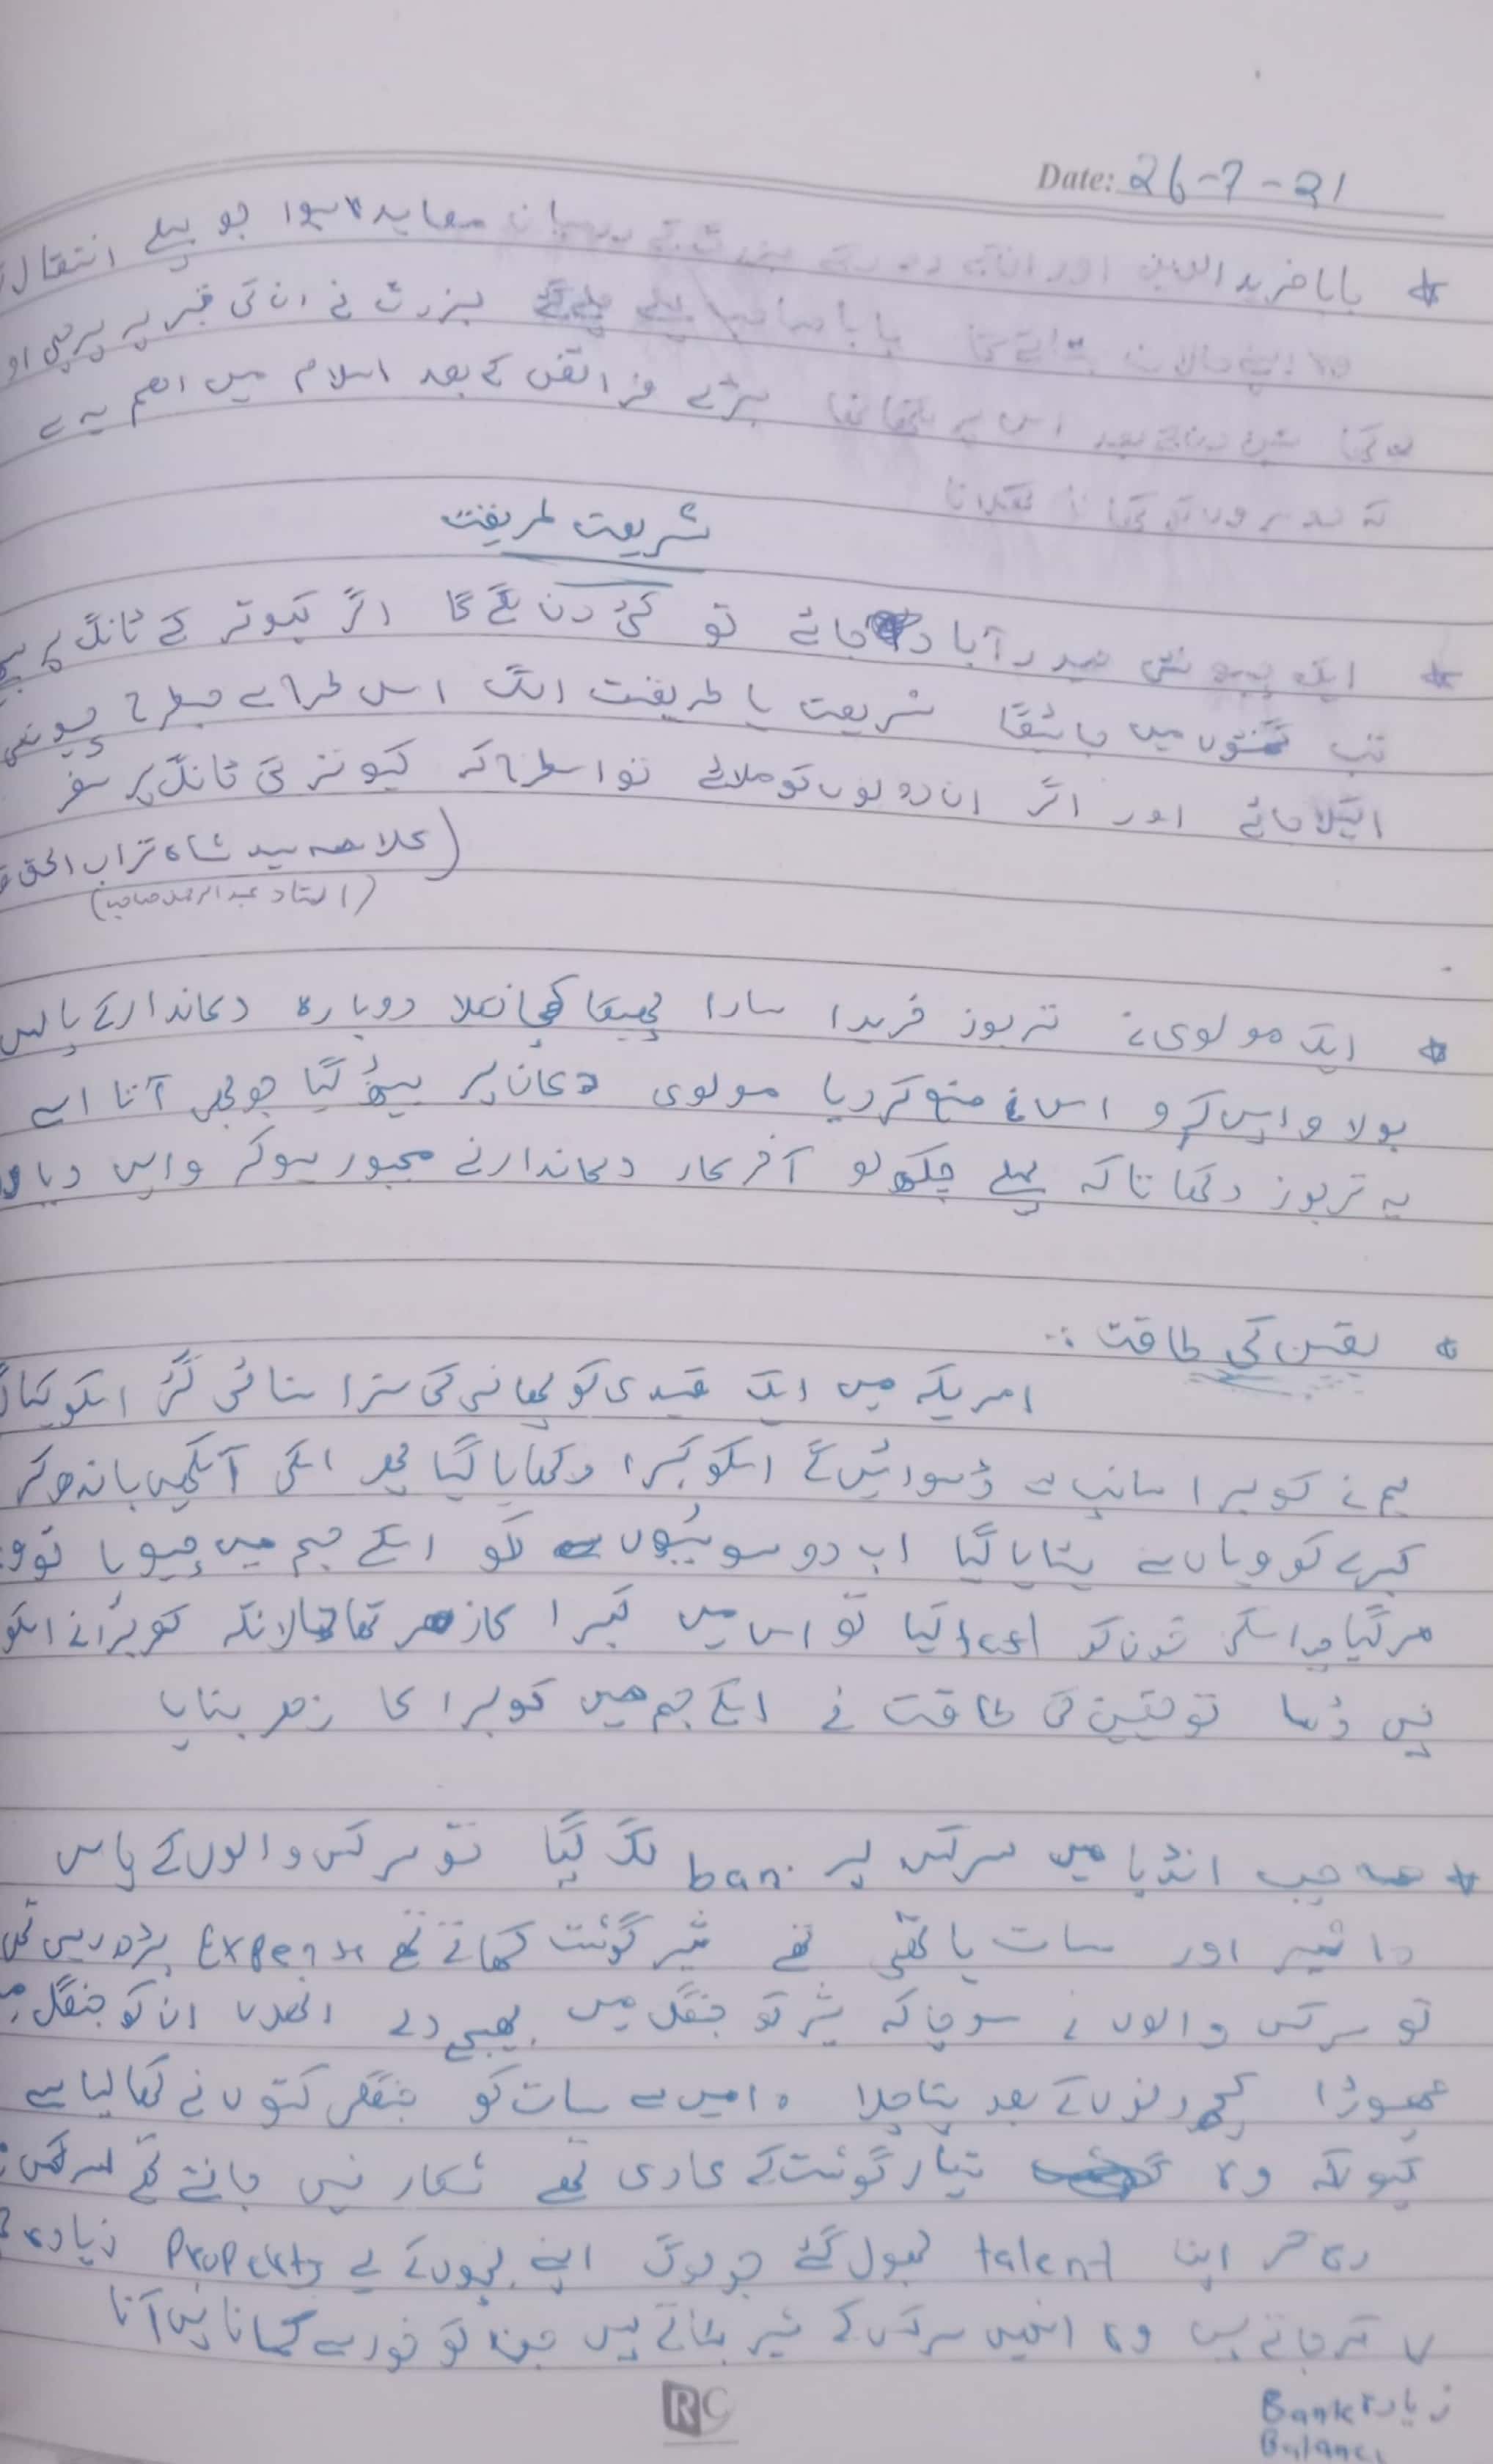 Date: 26-7-21
* بابا فرید الدین اور انکے دور کے بزرگ کے درمیان معاہدہ ہوا جو پہلے انتقال
وہ اپنے حالات بتائے گا بابا صاحب پہلے چلے گئے بزرگ نے ان کی قبر پر پرچی
تین دن کے بعد اس پر لکھا تھا بڑے فرائض کے بعد اسلام میں اھم یہ ہے
کہ دوسروں کو کھانا کھلانا
شریعت طریقت
* ایک چیونٹی حیدرآباد جائے تو کئی دن لگے گا اگر کبوتر کے ٹانگ پر
تب گھنٹوں میں جائیگا شریعت یا طریقت الگ اس طرح ہے جسطرح چیونٹی
اکیلا جائے اور اگر ان دونوں کو ملائے تو اسطرح کہ کبوتر کی ٹانگ پر سفر
(علامہ سید شاہ تراب الحق
(استاد عبدالرحمن صاحب)
* ایک مولوی نے تربوز خریدا سارا پھیکا نکلا دوبارہ دکاندار کے پاس
بولا واپس کرو اس نے منع کر دیا مولوی دکان پر بیٹھ گیا جو بھی آتا اسے
یہ تربوز دکھاتا کہ پہلے چکھ لو آخر کار دکاندار نے مجبور ہوکر واپس دیا
* یقین کی طاقت :
امریکہ میں ایک قیدی کو پھانسی کی سزا سنائی گئ اسکو کہا
ہم نے کوبرا سانپ سے ڈسوائیں گے اسکو کبرا دکھایا گیا پھر اسکی آنکھیں باندھ کر
کبرے کو وہاں سے ہٹایا گیا اب دو سوئیوں کو اسکے جسم میں چبویا تو
مرگیا جب اسکے خون کو test کیا تو اس میں کبرا کا زھر تھا حالانکہ کوبرا نے اسکو
نہیں ڈسا تو یقین کی طاقت نے اسکے جسم میں کوبرا کا زھر بنایا
* جب انڈیا میں سرکس پر ban لگ گیا تو سرکس والوں کے پاس
شیر اور سات ہاتھی تھے شیر گوشت کھاتے تھے بڑھ رہیں
تو سرکس والوں نے سوچا کہ شیر کو جنگل میں بھیج دے انھوں ان کو جنگل
چھوڑا کچھ دنوں کے بعد پتا چلا میں سے سات کو جنگلی کتوں نے کھا لیا ہے
کیونکہ وہ تیار گوشت کے عادی تھے شکار نہیں جانتے تھے
رہ کر اپنا talent بھول گئے جو لوگ اپنے بچوں کے لیے Property زیادہ
کر جاتے ہیں وہ انھیں سرکس کے شیر بناتے ہیں جن کو خود سے کمانا نہیں آتا
زیادہ Bank
Balance
RC